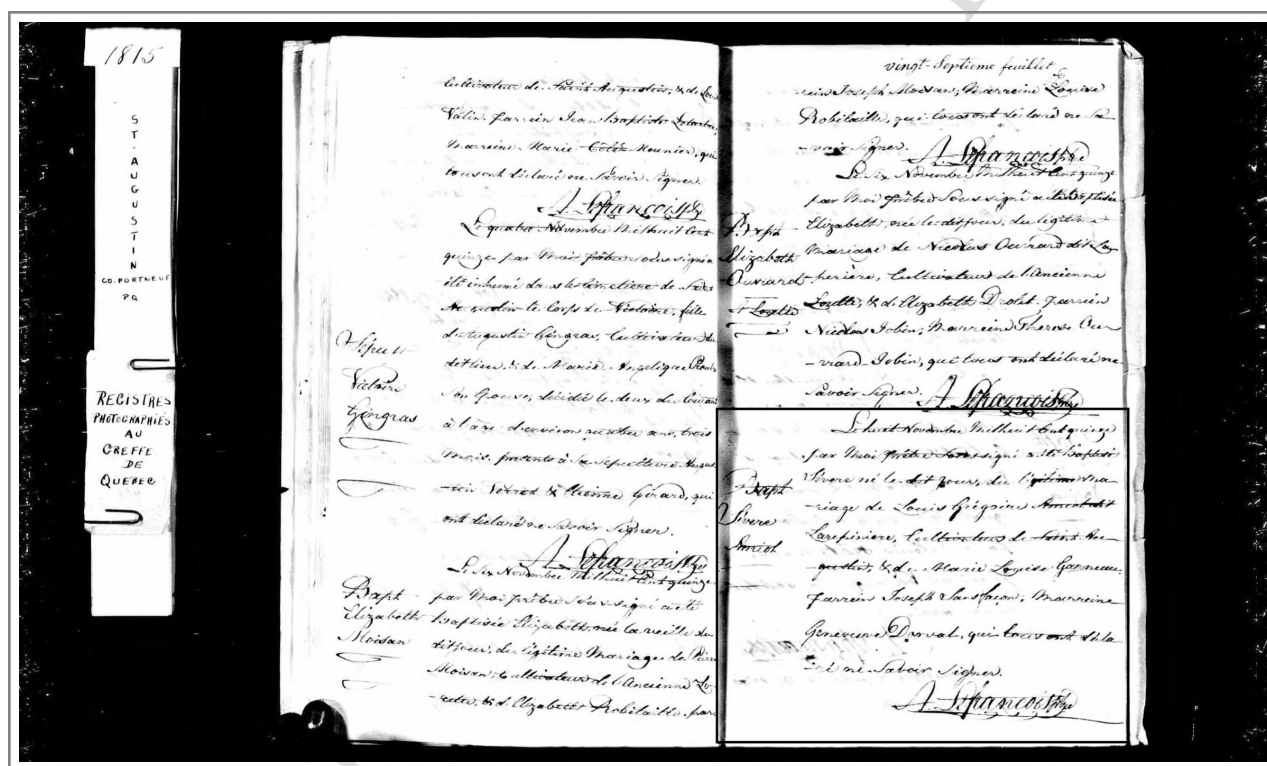 1815
ST. AUGUSTIN
CO. PORTNEUF
P.Q
REGISTRES
PHOTOGRAPHIÉS
AU
GREFFE
DE
QUEBEC
cultivateur de Saint Augustin, & de
Valin. parrein Jean Baptiste
Marreine Marie Meunier, qui
tous ont déclaré ne Savoir Signer.
A. Lefrançois Ptre
Le quatre Novembre Mil huit Cent
quinze par Moi prêtre Soussigné a
été inhumé dans le Cimetiere de Saint
Augustin le Corps de Victoire, fille
d'Augustin Gingras, Cultivateur du
dit lieu, & de Marie Angelique
Son Epouse, décédée le deux du Courant
à l'âge d'environ quatre ans, trois
Mois. presents à Sa Sepulture Augus
-tin Vésinat & Etienne Gérard, qui
ont déclaré ne Savoir Signer.
A. Lefrançois Ptre
Sépult
Victoire
Gingras
Le Six Novembre Mil huit Cent quinze
par Moi prêtre Soussigné a été
baptisée Elizabeth, née la veille du
dit jour, du légitime Mariage de Pierre
Moisan, Cultivateur de l'Ancienne Lo-
-rette, & d'Elizabeth Robitaille. par-
Bapt
Elizabeth
Moisan
vingt-Septieme feuillet
-rein Joseph Moisan; Marreine Louise
Robitaille, qui tous ont déclaré ne Sa-
-voir Signer.
A. Lefrançois Ptre
Le Six Novembre Mil huit Cent quinze
par Moi prêtre Sous signé a été baptisée
Elizabeth, née le dit jour, du légitime
Mariage de Nicolas Ouvrard dit La-
-periere, Cultivateur de l'ancienne
Lorette, & de Elizabeth Drolet. parrein
Nicolas Jobin; Marreine Therese Ou-
-vrard Jobin, qui tous ont déclaré ne
Savoir Signer.
A. Lefrançois Ptre
Bapt
Elizabeth
Ouvrard
A Lorette
Le huit Novembre Mil huit Cent quinze
par Moi Prêtre Sous signé a été baptisé
Sévere né le dit jour, du légitime ma-
-riage de Louis Grégoire Amiot dit
Larepiniere, Cultivateur de Saint Au-
-gustin, & de Marie Louise Garneau.
Parrein Joseph Sansfaçon; Marreine
Genevieve Dorval, qui tous ont décla
-ré ne Savoir Signer.
A. Lefrançois Ptre
Bapt
Sévere
Amiot